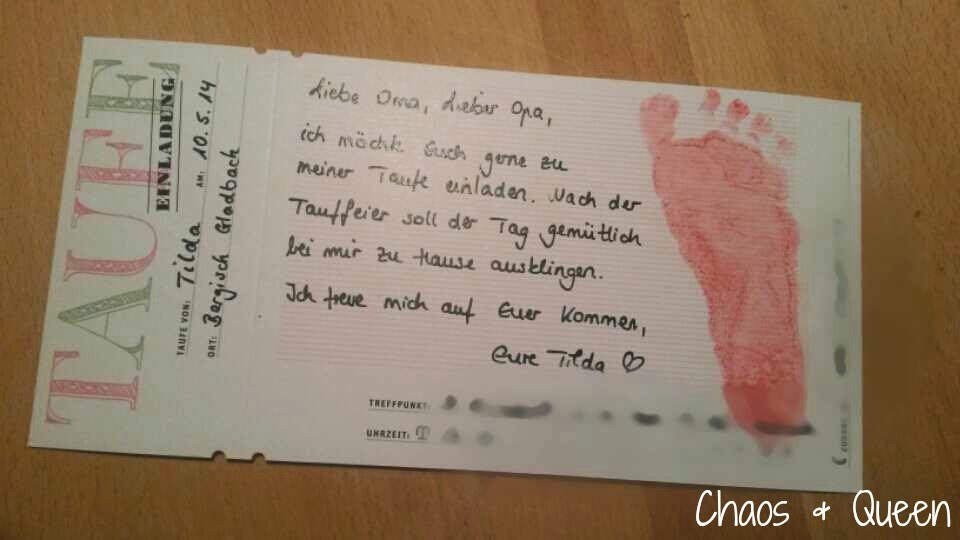 TAUFE
EINLADUNG
TAUFE VON: Tilda AM: 10.5.14
ORT: Bergisch Gladbach
Liebe Oma, Lieber Opa,
ich möchte Euch gerne zu
meiner Taufe einladen. Nach der
Tauffeier soll der Tag gemütlich
bei mir zu Hause ausklingen.
Ich freue mich auf Euer Kommen,
Eure Tilda ♡
TREFFPUNKT:
UHRZEIT:
Chaos & Queen